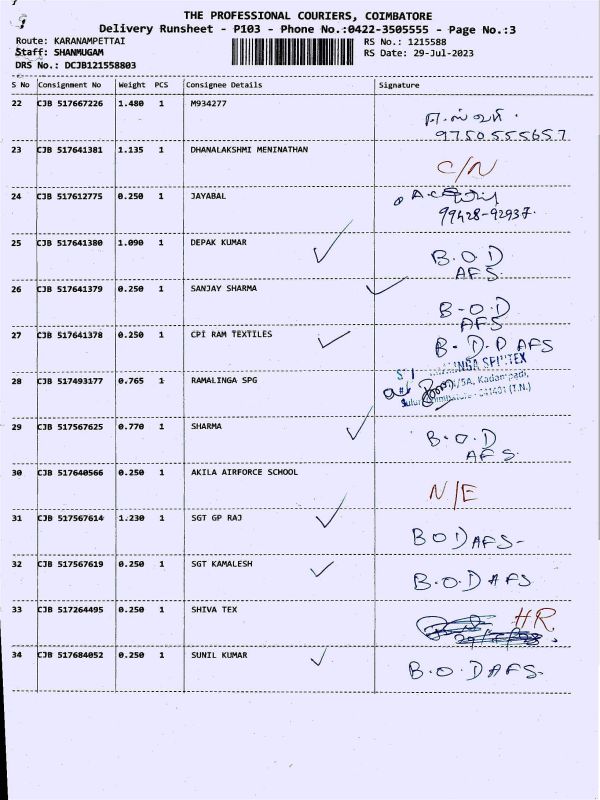 THE PROFESSIONAL COURIERS, COIMBATORE
Delivery Runsheet - P103 - Phone No.:0422-3505555 - Page No.:3
Route: KARANAMPETTAI
RS No.: 1215588
Staff: SHANMUGAM
RS Date: 29-Jul-2023
DRS No.: DCJB121558803
S No Consignment No Weight PCS Consignee Details Signature
22 CJB 517667226 1.480 1 M934277
எ. ஸ்வரி.
9750555657
23 CJB 517641381 1.135 1 DHANALAKSHMI MENINATHAN
C/N
24 CJB 517612775 0.250 1 JAYABAL
99428-92937.
25 CJB 517641380 1.090 1 DEPAK KUMAR
B.O.D
AFS
26 CJB 517641379 0.250 1 SANJAY SHARMA
B-O.D
AFS
27 CJB 517641378 0.250 1 CPI RAM TEXTILES
B.D.D AFS
28 CJB 517493177 0.765 1 RAMALINGA SPG
/5A, Kadampadi,
641401 (T.N.)
29 CJB 517567625 0.770 1 SHARMA
B.O.D
AFS.
30 CJB 517640566 0.250 1 AKILA AIRFORCE SCHOOL
N/E
31 CJB 517567614 1.230 1 SGT GP RAJ
BOD AFS-
32 CJB 517567619 0.250 1 SGT KAMALESH
B.O.D AFS
33 CJB 517264495 0.250 1 SHIVA TEX
HR
34 CJB 517684052 0.250 1 SUNIL KUMAR
B.O.D AFS.